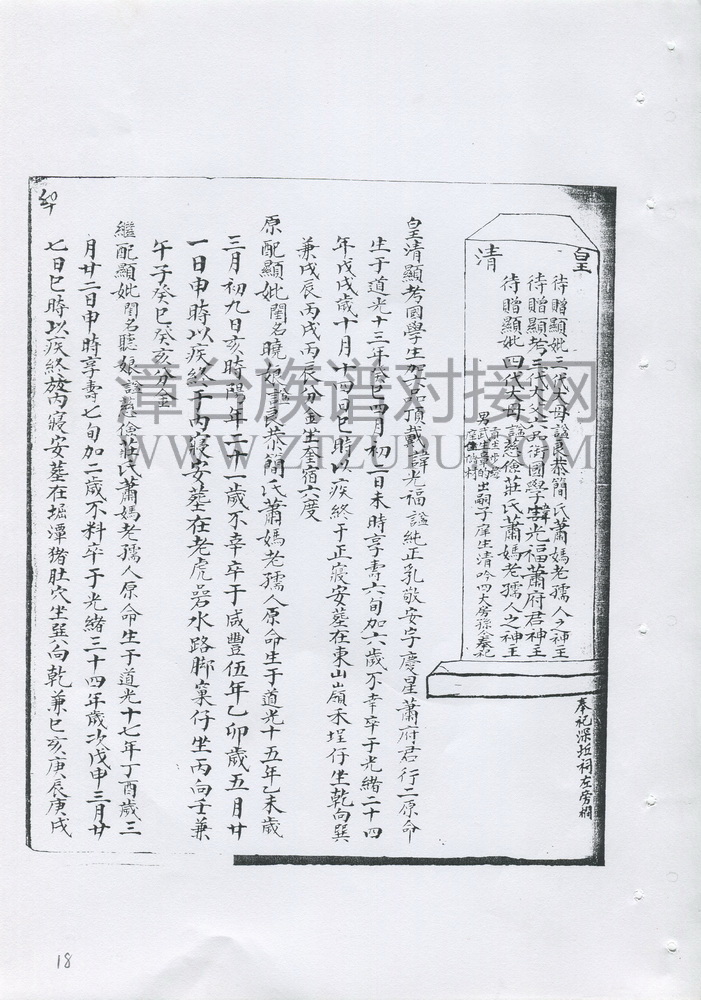 皇
清
待贈顯妣三代大母諡良恭簡氏蕭媽老孺人之神主
待贈顯考三代大父兵街國學生諱光福蕭府君神主
待贈顯妣四代大母諡慈儉莊氏蕭媽老孺人之神主
男武生
出嗣子庠生清吟四大房孫仝奉祀
奉祀深坵祠左旁櫥
皇清顯考國學生加六品頂戴諱光福諡純正乳敬安字慶星蕭府君行二原命
生于道光十三年癸巳四月初一日未時享壽六旬加六歲不幸卒于光緒二十四
年戊戌歲十月十四日巳時以疾終于正寢安墓在東山嶺禾埕仔坐乾向巽
兼戌辰丙戌丙辰分金坐奎宿六度
原配顯妣閨名曉娘諡良恭簡氏蕭媽老孺人原命生于道光十五年乙未歲
三月初九日亥時陽年二十一歲不幸卒于咸豐伍年乙卯歲五月廿
一日申時以疾終于內寢安墓在老虎咢水路脚窠仔坐丙向壬兼
午子癸巳癸亥分金
繼配顯妣閨名聽娘諡慈儉莊氏蕭媽老孺人原命生于道光十七年丁酉歲三
月廿二日申時享壽七旬加二歲不料卒于光緒三十四年歲次戊申三月廿
七日巳時以疾終於內寢安墓在堀潭猪肚穴坐巽向乾兼巳亥庚辰庚戌
漳台族谱对接网
WWW.ZTZUPU.COM
18